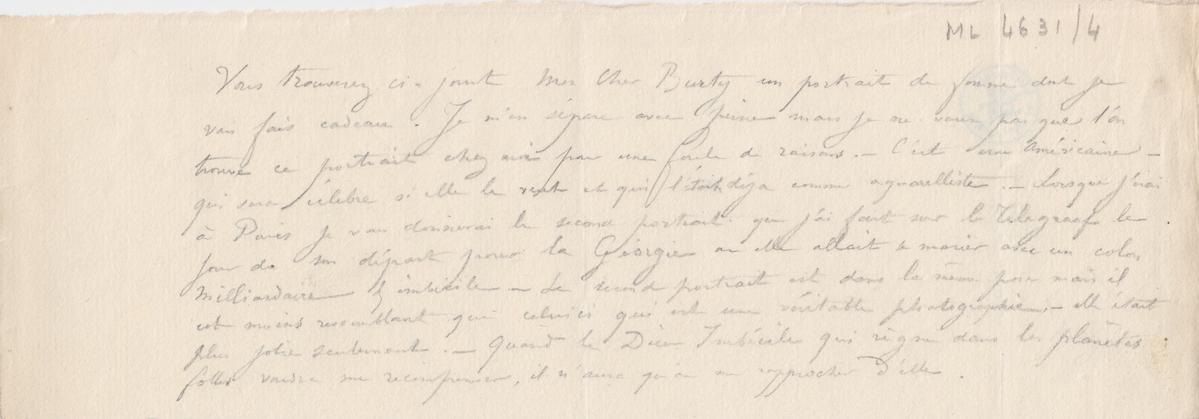 ML 4631/4
Vous trouverez ci-joint Mon Cher Burty un portrait de femme dont je
vous fais cadeau. Je m'en sépare avec peine mais je ne veux pas que l'on
trouve ce portrait chez moi pour une foule de raisons. - C'est une Américaine -
qui sera célèbre si elle le veut et qui l'était déja comme aquarelliste. - Lorsque j'irai
à Paris je vous donnerai le second portrait que j'ai fait sur le Telegraaf le
jour de son départ pour la Géorgie où elle allait se marier avec un colon
milliardaire & imbécile - Le second portrait est dans la même pose mais il
est moins ressemblant que celui-ci qui est une véritable photographie, - elle était
plus jolie seulement. - Quand le Dieu Imbécile qui règne dans les planètes
folles voudra me recompenser, il n'aura qu'à me rapprocher d'elle.